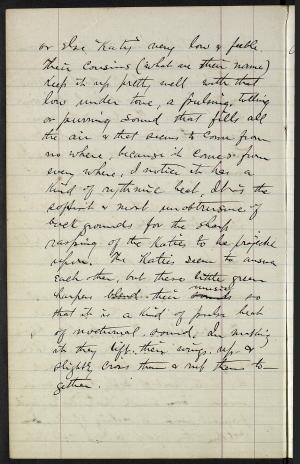 or else "Katie" very low & feeble.
Their cousins (what are their names)
keep it up pretty well with that
low under tone, a pulsing, trilling
or purring sound that fills all
the air & that seems to come from
no where, because it comes from
every where, I notice it has a
kind of rythmic beat, It is the
softest & most unobtrusive of
back grounds for the sharp
rasping of the Katies to be projected
upon. The Katies seem to answer
each other, but these little green
harpers blend their sounds musical so
that it is a kind of pulse beat
of nocturnal sound, In making
it they lift their wings up &
slightly cross them & rub them to-
gether.